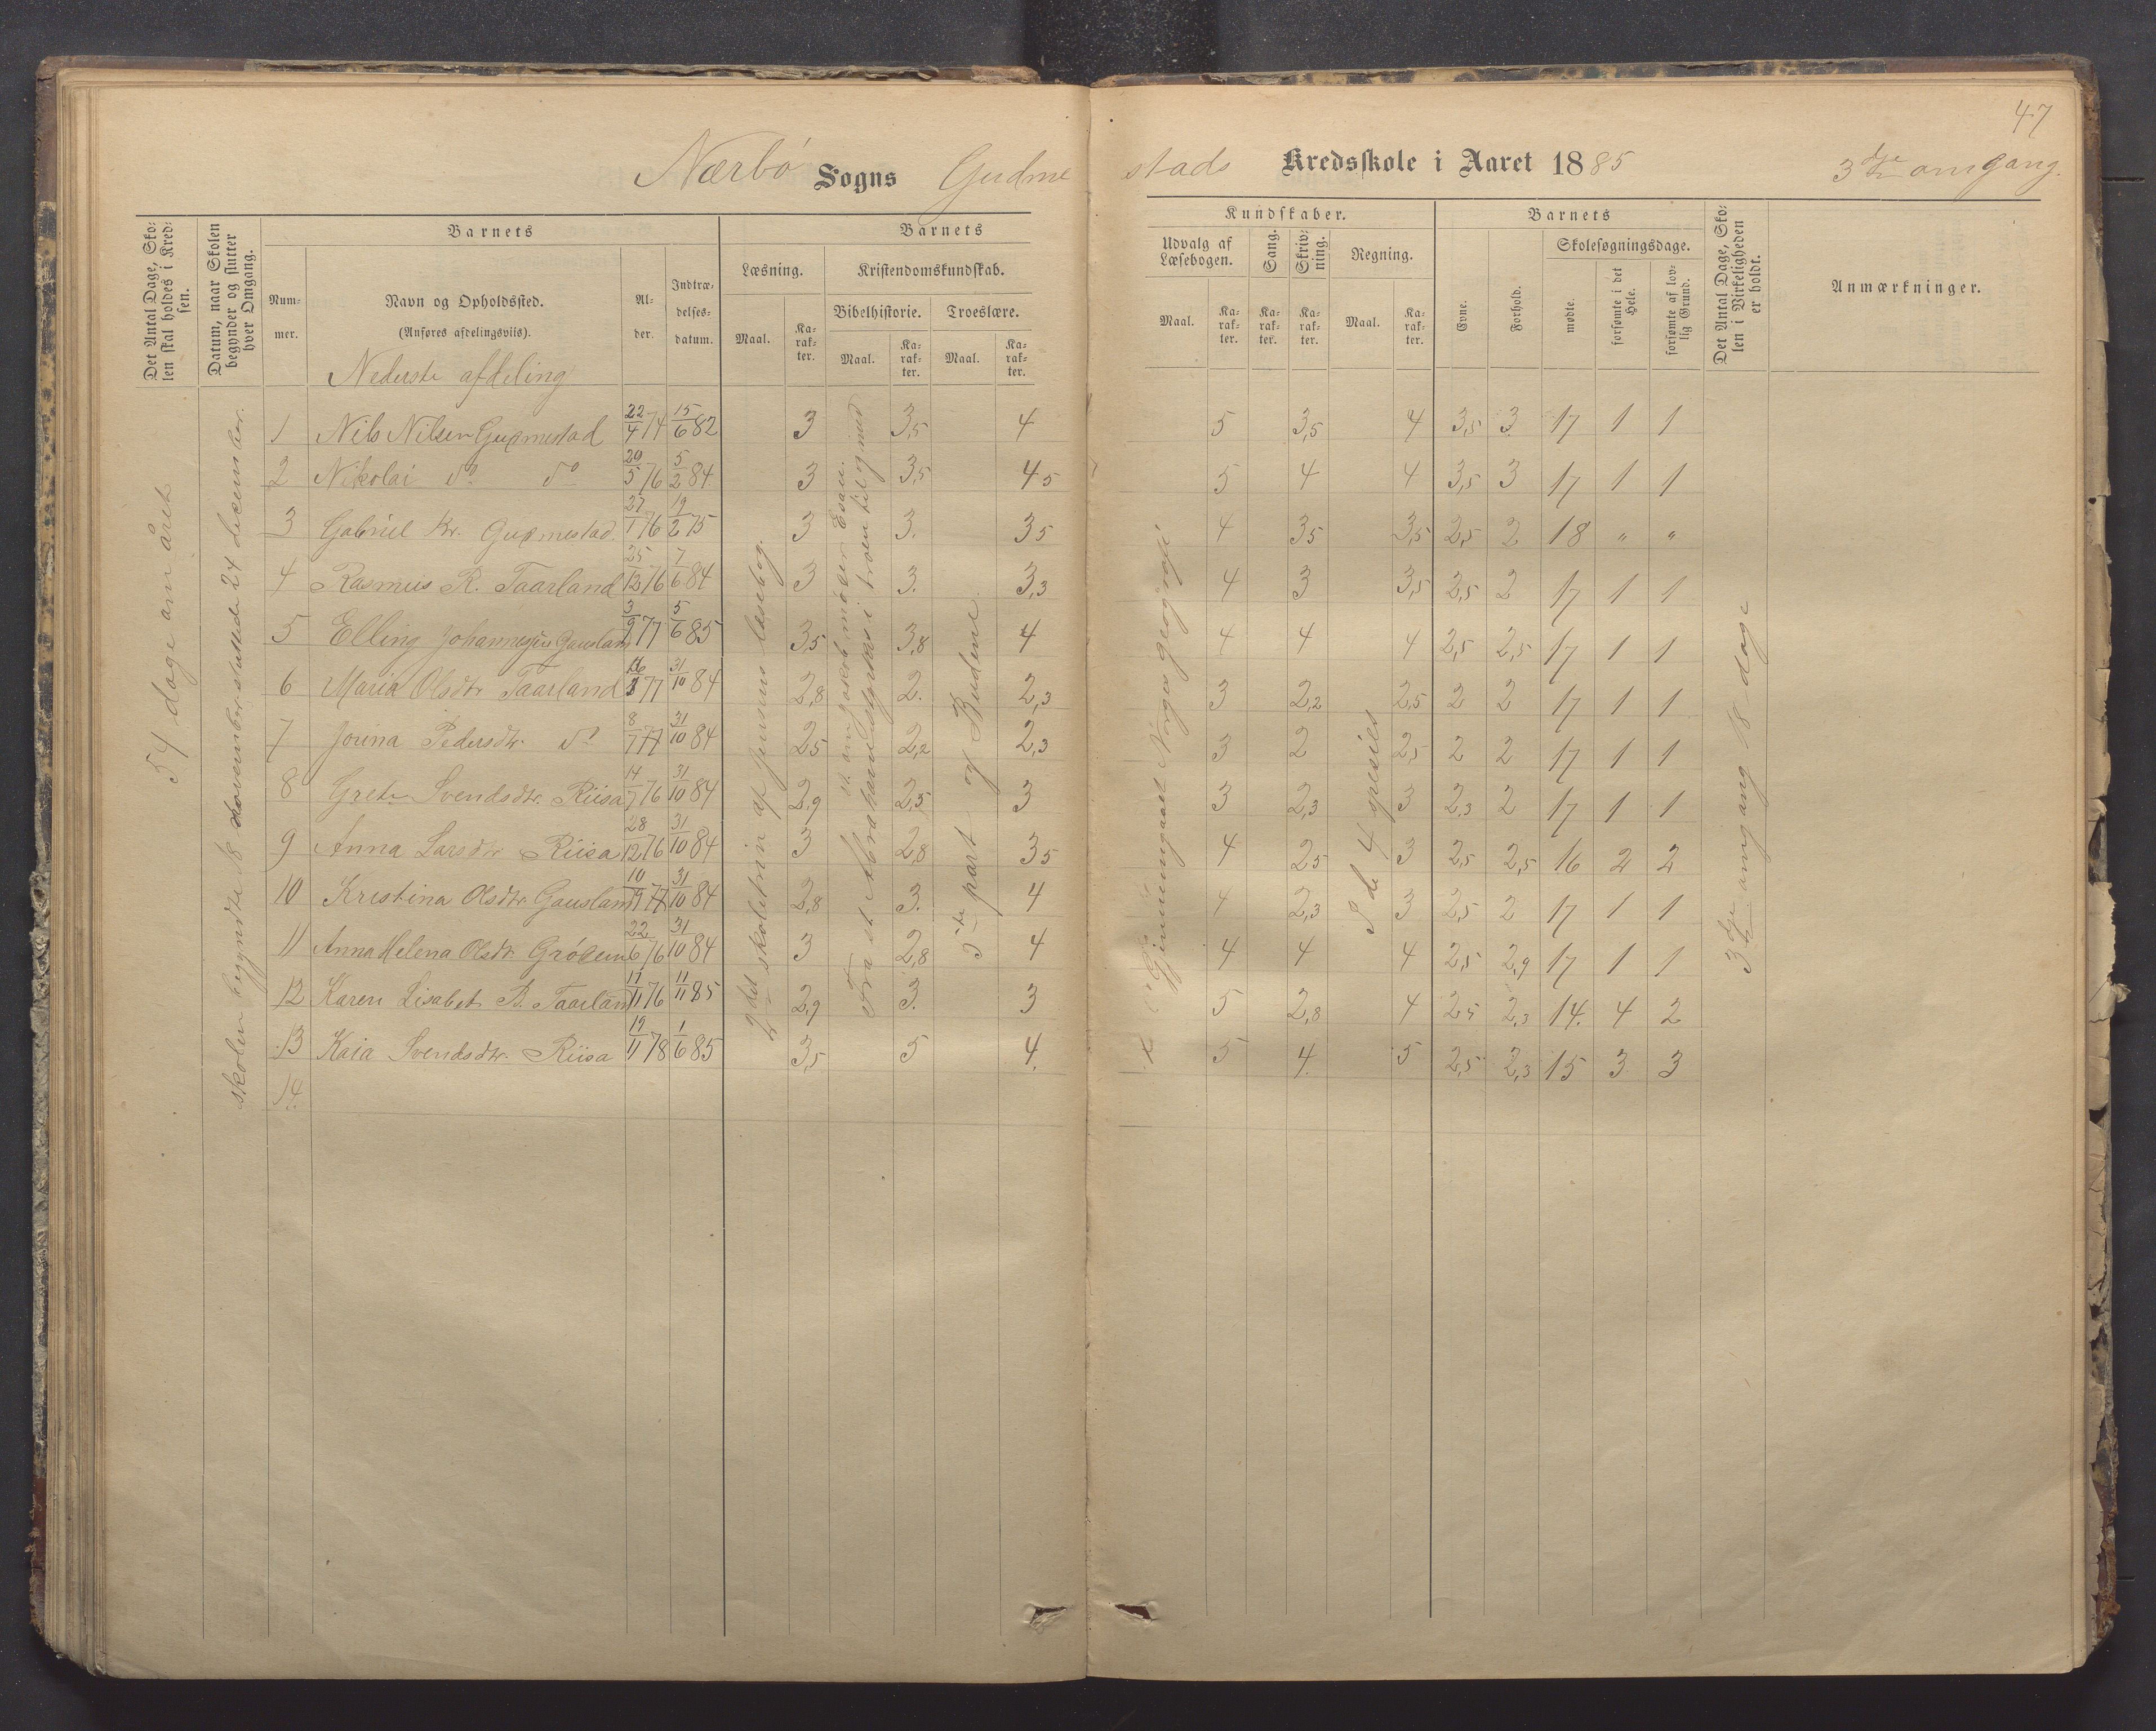 47
Nærbø Sogns Gudme stads Kredsskole i Aaret 1885 3die omgang.
Det Antal Dage, Skolen skal holdes i Kredsen.
Datum, naar Skolen begynder og slutter hver Omgang.
Barnets
Nummer.
Navn og Opholdssted.
(Anføres afdelingsviis).
Alder.
Indtrædelsesdatum.
Barnets
Læsning.
Maal.
Karakter.
Kristendomskundskab.
Bibelhistorie.
Maal.
Karakter.
Troeslære.
Maal.
Karakter.
Kundskaber.
Udvalg af Læsebogen.
Maal.
Karakter.
Sang.
Karakter.
Skrivning.
Karakter.
Regning.
Maal.
Karakter.
Barnets
Evne.
Forhold.
Skolesøgningsdage.
mødte.
forsømte i det Hele.
forsømte af lovlig Grund.
Det Antal Dage, Skolen i Virkeligheden er holdt.
Anmærkninger.
Nederste afdeling
54 dage om året
skolen begyndte 18 november sluttede 24 december.
2det skoletrin af Jensens læsebog.
Fra st. Abrahams
st. om Jakob møder Esau.
5te part og Budene
Gjennemgaaet Norges geografi
I de 4 spesies
3die omgang 18 dage
1 Nils Nilsen Gudmestad 22/4 74 15/6 82 3 3,5 4 5 3,5 4 3,5 3 17 1 1
2 Nikolai do do 20/5 76 5/2 84 3 3,5 4 5 5 4 4 3,5 3 17 1 1
3 Gabriel Kr. Gudmestad 27/1 76 19/2 75 3 3. 3 5 4 3 5 3,5 2,5 2 18 " "
4 Rasmus R. Taarland 25/12 76 7/6 84 3 3. 3,3 4 3 3,5 2,5 2 17 1 1
5 Elling Johannessen Gausland 3/9 77 5/6 85 3,5 3,8 4 4 4 4 2,5 2,5 17 1 1
6 Maria Olsdtr Taarland 16/8 77 31/10 84 2,8 2. 2,3 3 2,2 2,5 2 2 17 1 1
7 Jorina Pedersdtr. do 8/7 77 31/10 84 2 5 2,2 2,3 3 2 2,5 2 2 17 1 1
8 Grete Svendsdtr. Riisa 14/7 76 31/10 84 2,9 2,5 3 3 2,3 3 2,3 2 17 1 1
9 Anna Larsdtr Riisa 28/12 76 31/10 84 3 2,8 3 5 4 2 5 3 2,5 2,5 16 2 2
10 Kristina Olsdtr Gausland 10/9 77 31/10 84 2,8 3. 4 4 2,3 3 2,5 2 17 1 1
11 Anna Helena Olsdtr. Grødem 22/6 76 31/10 84 3 2,8 4 4 4 4 2,5 2,9 17 1 1
12 Karen Lisabet B. Taarland 17/11 76 11/11 85 2,9 3. 3 5 2,8 4 2 5 2,3 14. 4 2
13 Kaia Svendsdtr. Riisa 19/11 78 1/6 85 3,5 5 4. 5 4. 5 2,5 2,3 15 3 3
14